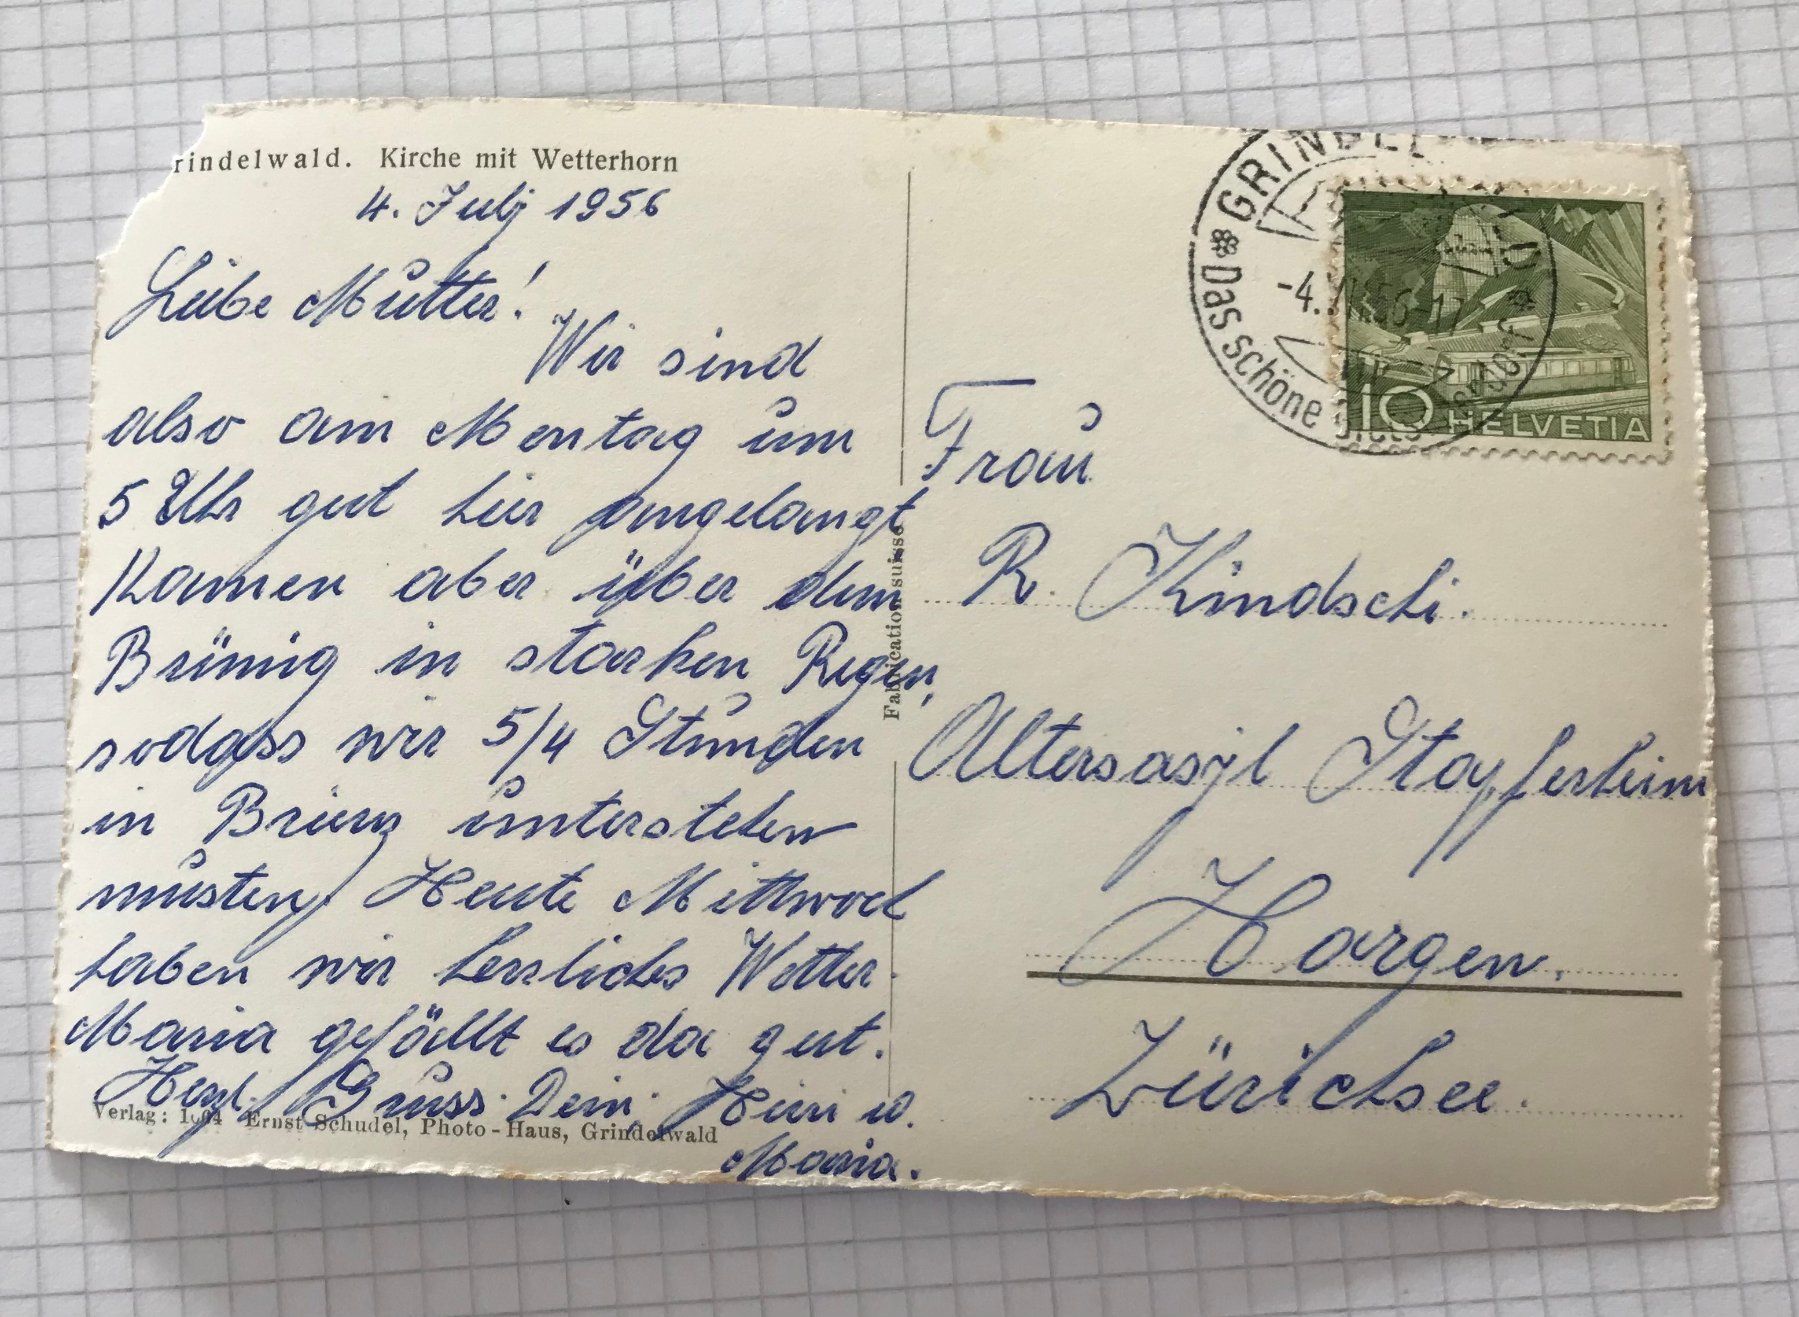 rindelwald. Kirche mit Wetterhorn
4. Julj 1956
Liebe Mutter!
Wir sind
also am Montag um
5 Uhr gut hier angelangt
Kamen aber über dem
Brünig in starken Regen,
sodass wir 5/4 Stunden
in Brienz unterstehen
mussten. Heute Mittwoch
haben wir herrliches Wetter.
Maria gefällt es da gut.
Herzl. Gruss. Dein, Heiri u.
Maria.
Verlag: Ernst Schudel, Photo-Haus, Grindelwald
Fabrication suisse
GRINDEL
Das schöne
-4. 56-17
10 HELVETIA
Frau
R. Kindschi.
Altersasyl Stapferheim
Horgen.
Zürichsee.